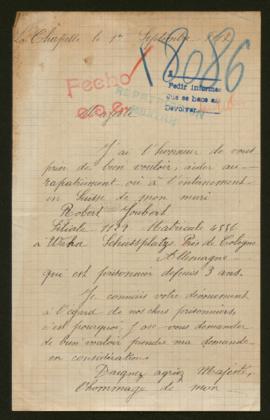 La Chapelle le 1er Septembre
18086
Fecho
Pedir informes
que se hace au
Devolver
Majesté
J'ai l'honneur de vous
prier de bien vouloir, aider au
rapatriement ou à l'internement
en Suisse de mon mari
Robert Joubert
Matricule 4556
à Wahn Schiessplatz Près de Cologne
Allemagne
qui est prisonnier depuis 3 ans.
Je connais votre dévouement
à l'égard de nos chers prisonniers,
c'est pourquoi, j'ose vous demander
de bien vouloir prendre ma demande
en considération.
Daignez agréer Majesté,
l'hommage de mon